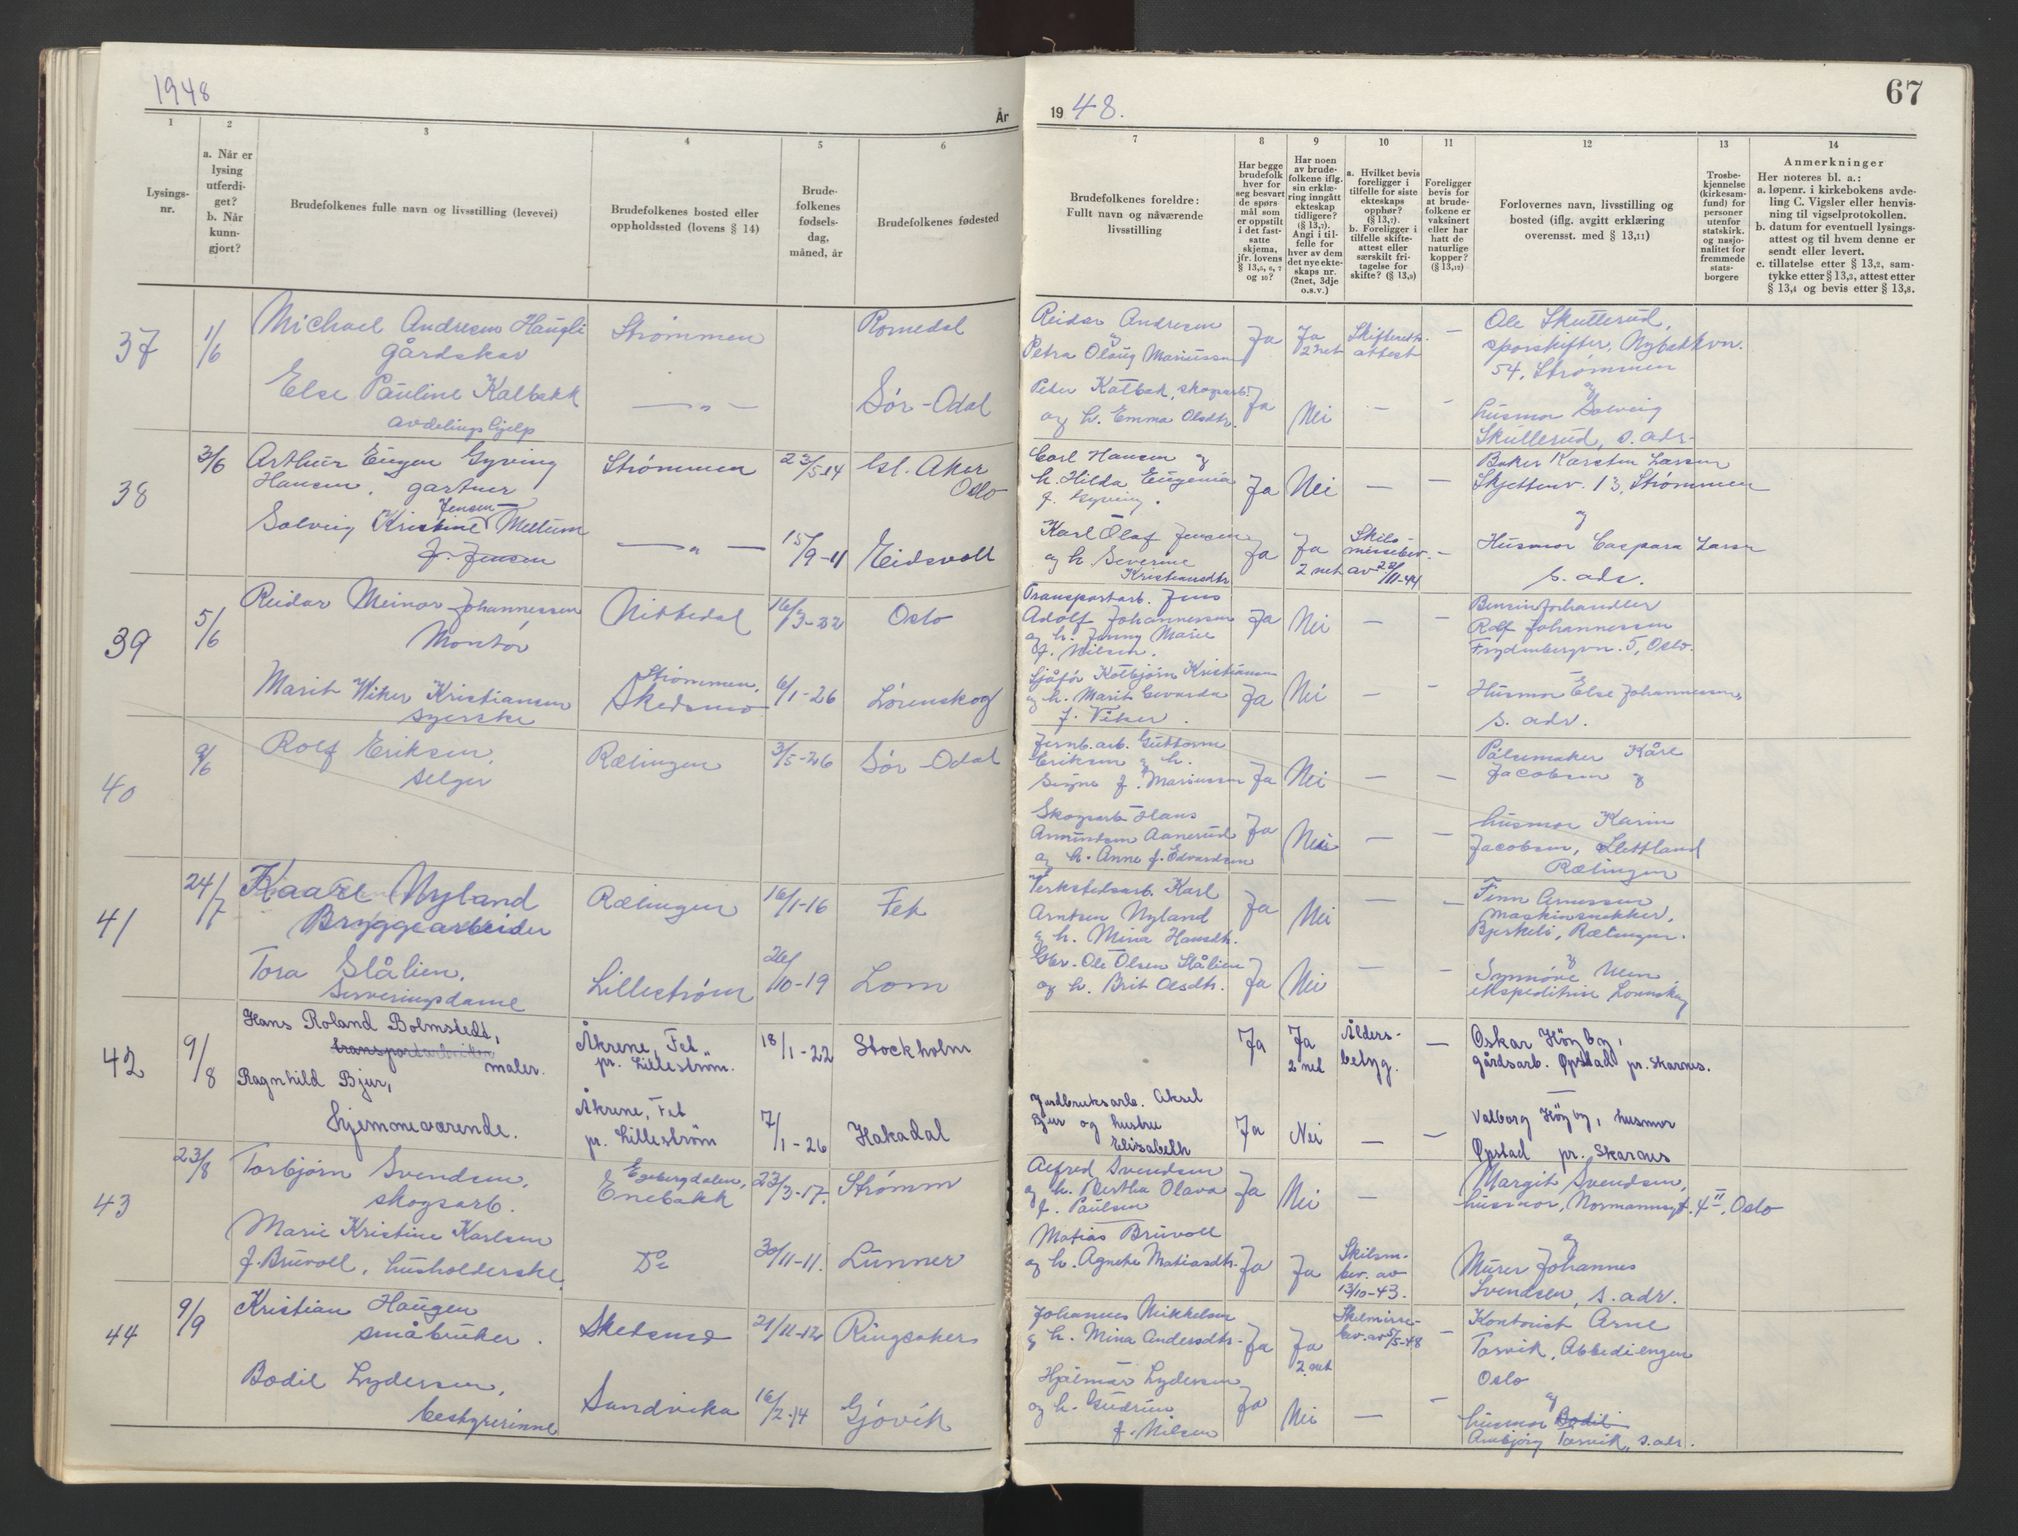 1948
År
1
2
3
4
5
6
Lysings-
nr.
a. Når er
lysing
utferdi-
get?
b. Når
kunn-
gjort?
Brudefolkenes fulle navn og livsstilling (levevei)
Brudefolkenes bosted eller
oppholdssted (lovens § 14)
Brude-
folkenes
fødsels-
dag,
måned, år
Brudefolkenes fødested
37
1/6
Michael Andresen Haugli
Strømmen
Romedal
gårdskar
Else Pauline Kalbakk
— „ —
Sør-Odal
avdelingshjelp
38
3/6
Arthur Eugen Gyving
Strømmen
23/5-14
V. Aker
Hansen, gartner
Oslo
Jensen
Solveig Kristine Mellum
— „ —
15/9-11
Eidsvoll
f. Jensen
39
5/6
Reidar Meinar Johannessen
Nittedal
16/3-22
Oslo
Montør
Marit Wiker Kristiansen
Strømmen,
Skedsmo
6/1-26
Lørenskog
syerske
40
9/6
Rolf Eriksen,
Rælingen
3/5-26
Sør-Odal
selger
41
24/7
Kaare Nyland
Rælingen
16/1-16
Fet
Bryggearbeider
Tora Slålien,
Lillestrøm
26/10-19
Lom
Serveringsdame
42
9/8
Hans Roland Bolmstedt,
Åkrene, Fet
18/1-22
Stockholm
transportarbeider
maler.
pr. Lilleström.
Ragnhild Bjur,
Åkrene, Fet
7/1-26
Hakadal
Hjemmeværende.
pr. Lilleström
43
23/8
Torbjørn Svendsen,
Egebergdalen,
23/3-17.
Strømm
skogsarb.
Enebakk
Marie Kristine Karlsen
Do
30/11-11.
Lunner
f. Bruvoll, husholderske,
44
9/9
Kristian Haugen
Skedsmo
21/11-12
Ringsaker
småbruker.
Bodil Lydersen,
Sandvika
16/2-14
Gjøvik
bestyrerinne
67
1948.
7
8
9
10
11
12
13
14
Brudefolkenes foreldre:
Fullt navn og nåværende
livsstilling
Har begge
brudefolk
hver for
seg besvart
de spørs-
mål som
er oppstilt
i det fast-
satte
skjema,
jfr. lovens
§ 13,5, 6, 7
og 10?
Har noen
av brude-
folkene iflg.
sin erklæ-
ring inngått
ekteskap
tidligere?
(§ 13,7).
Angi i til-
felle for
hver av dem
det nye ekte-
skaps nr.
(2net, 3dje
o.s.v.)
a. Hvilket bevis
foreligger i
tilfelle for siste
ekteskaps
opphør?
(§ 13,7).
b. Foreligger i
tilfelle skifte-
attest eller
særskilt fri-
tagelse for
skifte? (§ 13,9)
Foreligger
bevis for
at brude-
folkene er
vaksinert
eller har
hatt de
naturlige
kopper?
(§ 13,12)
Forlovernes navn, livsstilling og
bosted (iflg. avgitt erklæring
overensst. med § 13,11)
Trosbe-
kjennelse
(kirkesam-
fund) for
personer
utenfor
statskirk.
og nasjo-
nalitet for
fremmede
stats-
borgere
Anmerkninger
Her noteres bl. a.:
a. løpenr. i kirkebokens avde-
ling C. Vigsler eller henvis-
ning til vigselprotokollen.
b. datum for eventuell lysings-
attest og til hvem denne er
sendt eller levert.
c. tillatelse etter § 13,2, sam-
tykke etter § 13,3, attest etter
§ 13,4 og bevis etter § 13,8.
Reidar Andresen
og
Petra Olaug Mariussen
Ja
Ja
2 net
Skifteretts-
attest
—
Ole Skullerud,
sporskifter, Nybakkvn.
54, Strømmen
og
Peter Kalbak, skogsarb.
og h. Emma Olsdtr.
Ja
Nei
—
—
husmor Solveig
Skullerud, s. adr.
Carl Hansen og
h. Hilda Eugenia
f. Gyving.
Ja
Nei
—
—
Baker Karsten Larsen
Skjettenv. 13, Strømmen
og
Karl Olaf Jensen
og h. Severine
Kristiansdtr.
Ja
Ja
2 net
Skils-
missebev.
av 22/11-44
—
Husmor Caspara Larsen
s. adr.
Transportarb. Jens
Adolf Johannessen
og h. Jenny Marie
f. Nilsen.
Ja
Nei
—
—
Bensinforhandler
Rolf Johannessen
Frydenbergvn. 5, Oslo.
Sjåfør Kolbjørn Kristiansen
og h. Marit Edvarda
f. Viker.
Ja
Nei
—
—
Husmor Else Johannessen,
s. adr.
Jernb.arb. Guttorm
Eriksen og h.
Signe f. Mariussen
Ja
Nei
—
—
Pølsemaker Kåre
Jacobsen og
Skogsarb. Hans
Amundsen Aanerud
og h. Anne f. Edvardsen
Ja
Nei
—
—
husmor Karin
Jacobsen, Slettland
Rælingen
Verkstedsarb. Karl
Arntsen Nyland
og h. Mina Hansdtr.
Ja
Nei
—
—
Finn Arnessen
maskinsnekker,
Bjerkeli, Rælingen.
og
Gbr. Ole Olsen Slålien
og h. Brit Olsdtr.
Ja
Nei
—
—
Synnøve Moen
ekspeditrise Lørenskog
Ja
Ja
2 net
Ålders-
betyg.
—
Oskar Höyby,
gårdsarb. Øpstad pr. Skarnes.
Jordbruksarb. Aksel
Bjur og hustru
Elisabeth
Ja
Nei
—
—
Valborg Höyby, husmor
Øpstad pr. Skarnes
Alfred Svendsen
og h. Bertha Olava
f. Paulsen
Ja
Nei
—
Margit Svendsen,
husmor, Normannsgt. 4 II, Oslo
og
Matias Bruvoll
og h. Agnete Matiasdtr.
Ja
Ja
Skilsm.
bev. av
13/10-43.
Murer Johannes
Svendsen, s. adr.
Johannes Mikkelsen
og h. Mina Andersdtr.
Ja
Ja
2 net
Skilsmisse-
bev. av 5/5-48
—
Kontorist Arne
Torvik, Abbediengen
Oslo
og
Hjalmar Lydersen
og h. Gudrun
f. Nilsen
Ja
Nei
—
—
husmor Bodil
Annbjørg Torvik, s. adr.